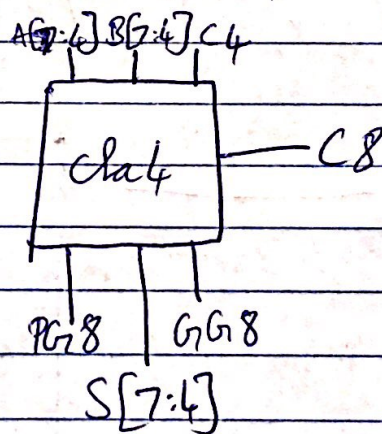 A[7:4] B[7:4] C4
cla4
C8
PG8 GG8
S[7:4]